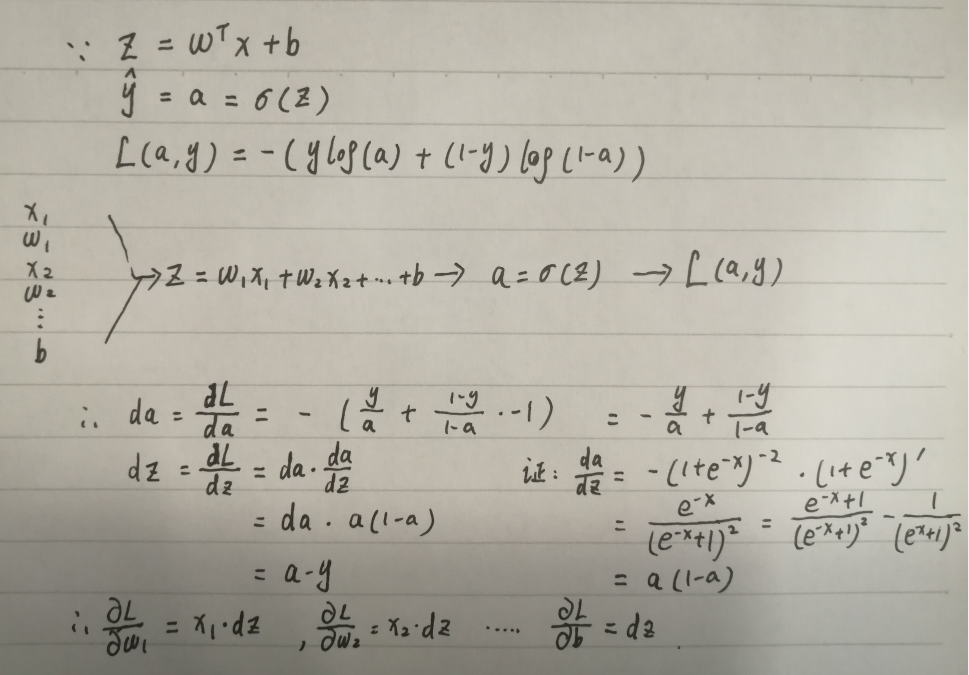 ∵ z = wᵀx + b
ŷ = a = σ(z)
L(a,y) = -(ylog(a) + (1-y)log(1-a))
x₁
w₁
x₂
w₂
⋮
b
→ z = w₁x₁ + w₂x₂ + ... + b → a = σ(z) → L(a,y)
∴ da = dL/da = - (y/a + (1-y)/(1-a) · -1) = - y/a + (1-y)/(1-a)
dz = dL/dz = da · da/dz 证: da/dz = -(1+e⁻ˣ)⁻² · (1+e⁻ˣ)′
= da · a(1-a) = e⁻ˣ/(e⁻ˣ+1)² = (e⁻ˣ+1)/(e⁻ˣ+1)² - 1/(eˣ+1)²
= a-y = a(1-a)
∴ ∂L/∂w₁ = x₁·dz , ∂L/∂w₂ = x₂·dz ..... ∂L/∂b = dz .